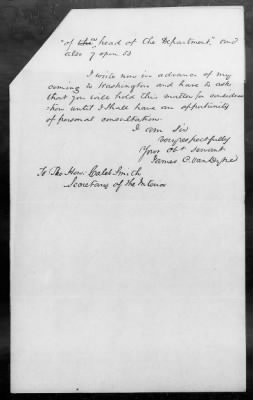 "of the, head of the Department," and
also 7 open
I write now in advance of my
coming to Washington and have to ask
that you will hold this matter for considera
tion until I shall have an opportunity
of personal consultation.
I am Sir
very respectfully
Your Obt servant
James C. Van Dyke
To The Hon. Caleb Smith
Secretary of the Interior